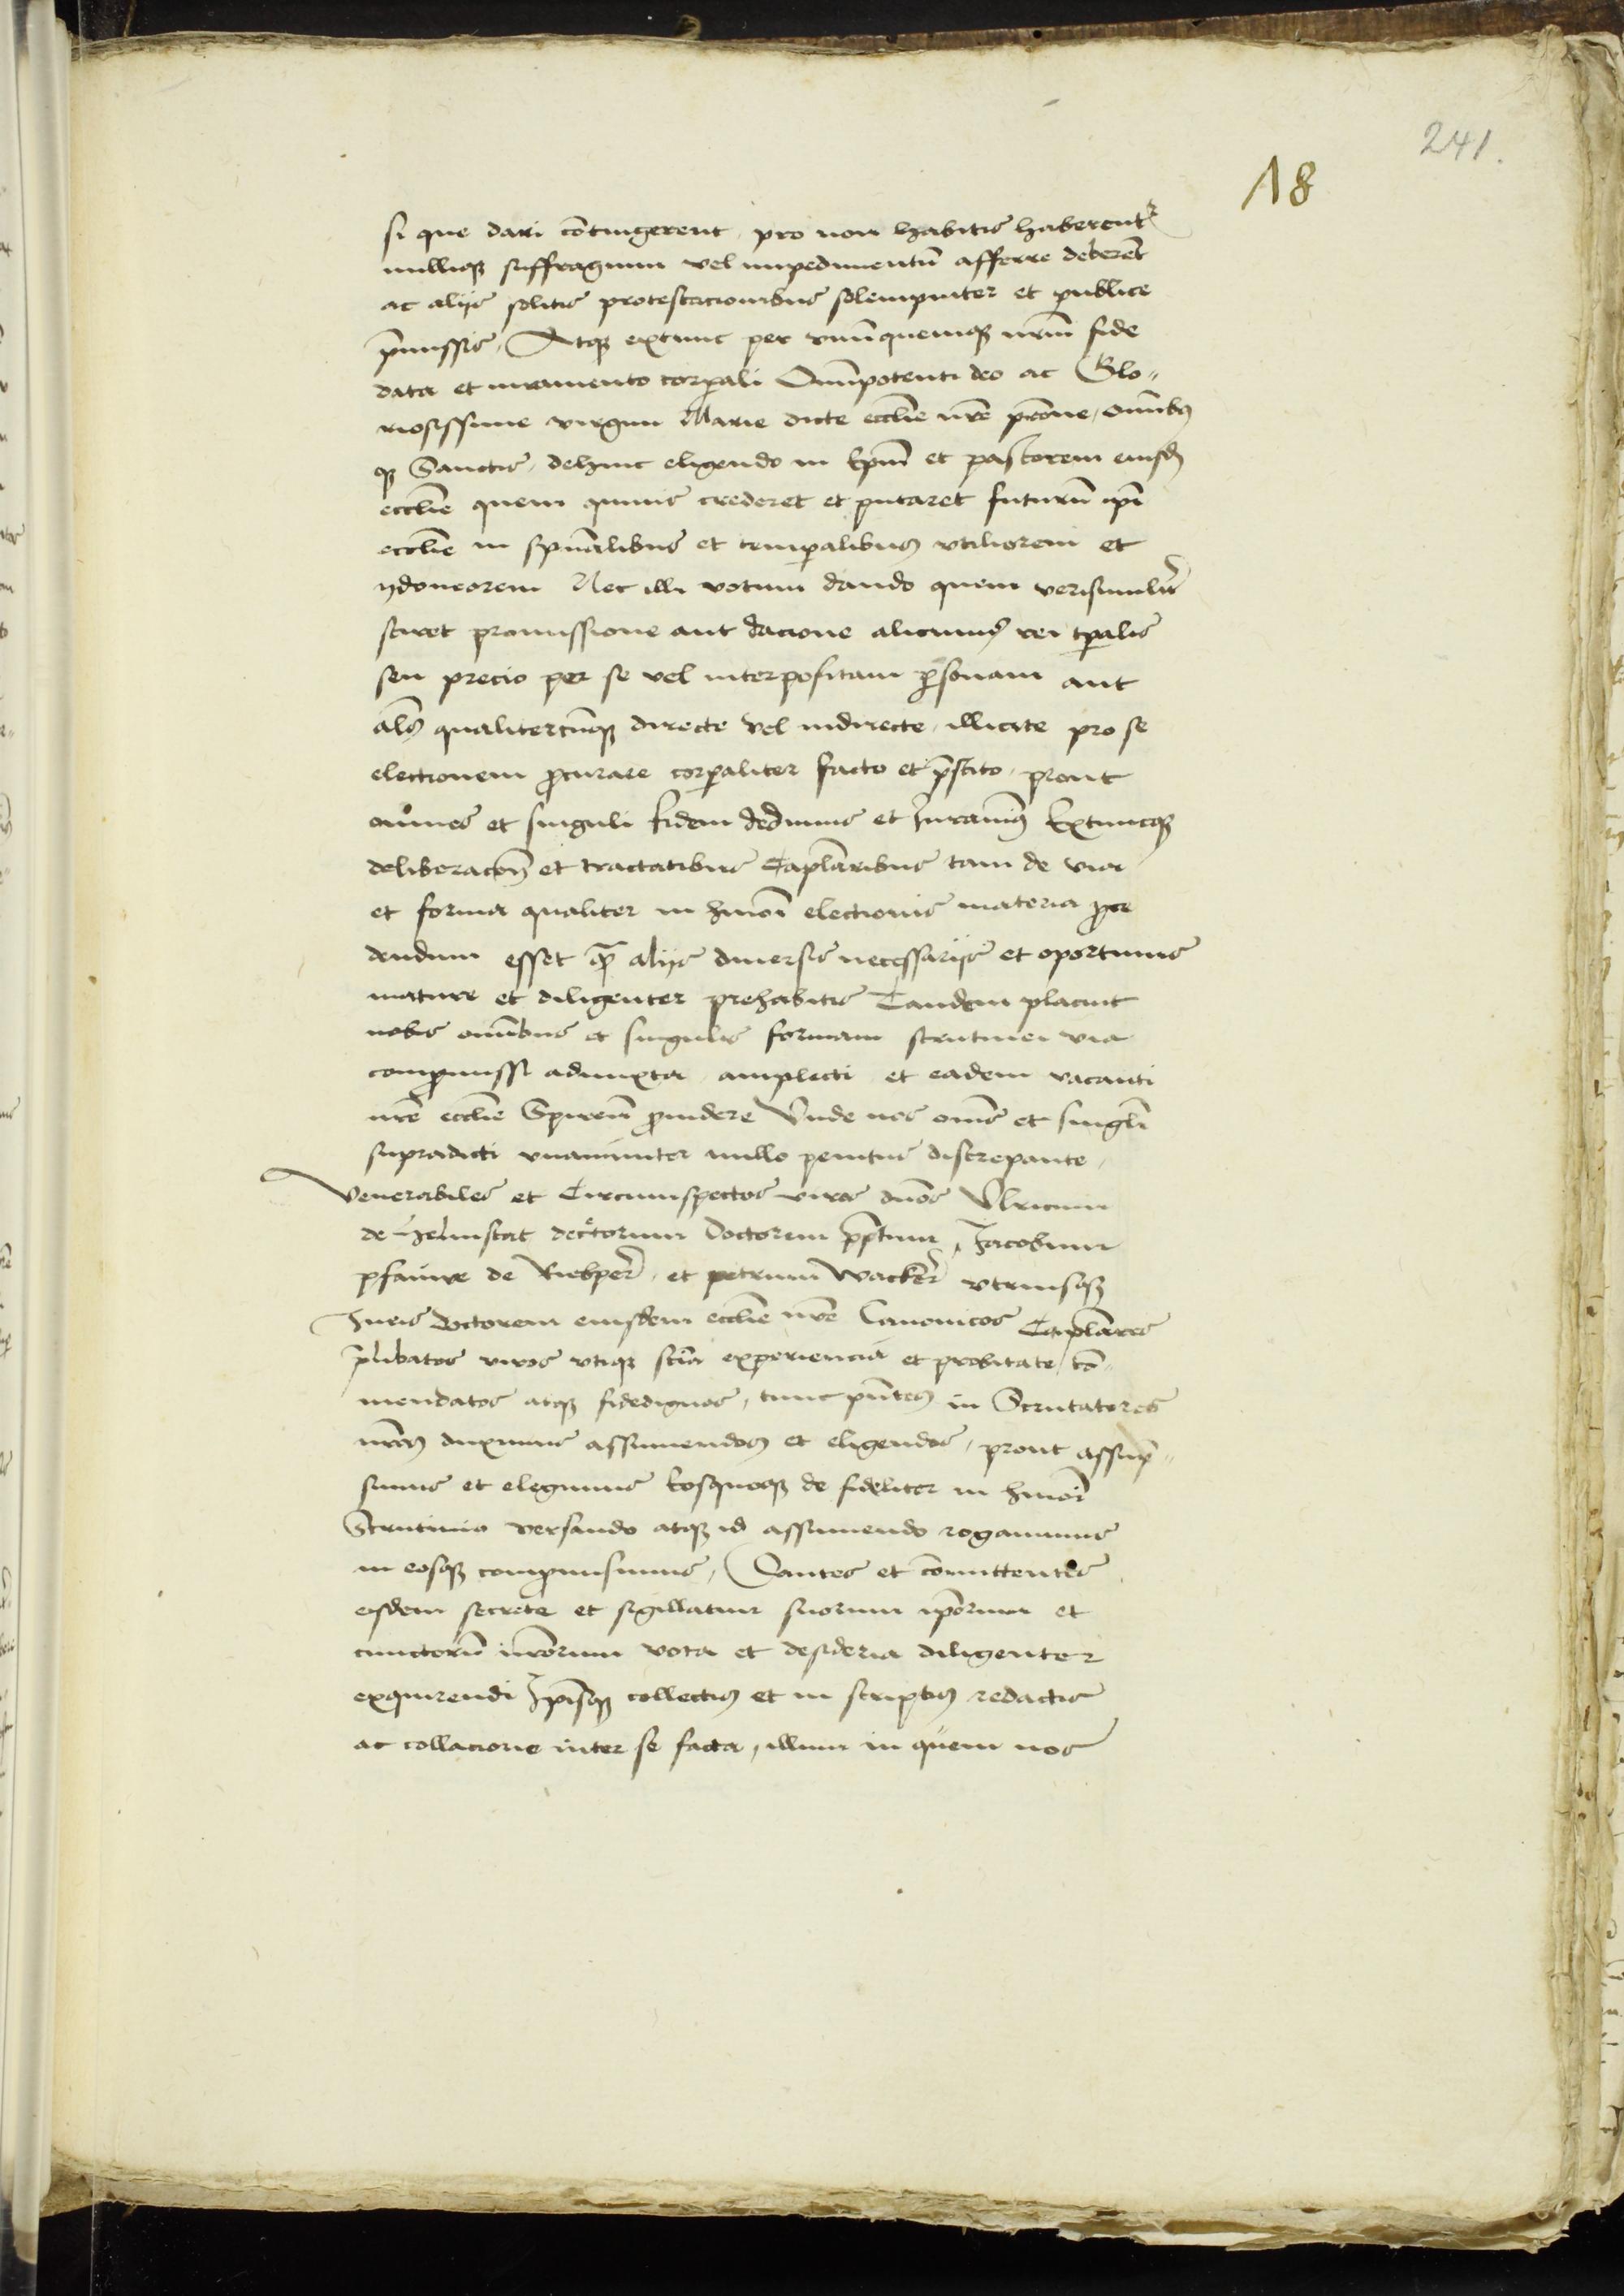 241.
18
si que dari cōtingerent, pro non habitis haberentr
nulliqȝ suffragium vel impedimentū afferre deberēt
ac alijs solitis protestacionibus solempniter et publice
p̄missis, Atqȝ extunc per vnūquemqȝ nr̄m fide
data et iuramento corꝑali Om̄ipotenti deo ac Glo„
riosissime virgini Marie dicte eccl̄ie nr̄e pr̄one, om̄ibȝ
qȝ Sanctis, dehinc eligendo in Ep̄m et pastorem eiusd̄
eccl̄ie quem quiuis crederet et putaret futurū ip̄i
eccl̄ie in sp̄ualibus et temꝑalibus vtiliorem et
ydoneorem Nec illi votum dando quem verisimilr̄
sciret promissione aut dacione alicuius rei tp̄alis
seu precio per se vel interpositam ꝑsonam aut
al̄s qualitercūqȝ directe vel indirecte, illicite pro se
electionem ꝓcurare corꝑaliter facto et p̄stito, prout
omnes et singuli fidem dedimus et Iurauimꝰ Extuncqȝ
deliberacōn̄ et tractatibus Capl̄aribus tam de via
et forma qualiter in hm̄oi electionis materia ꝓce
dendum esset qȝ̄ alijs diuersis necessarijs et oportunis
mature et diligenter prehabitis Tandem placuit
nobis om̄ibus et singulis formam scrutinei via
comꝓmissi adiuncta amplecti et eadem vacanti
nr̄e eccl̄ie Spiren̄ ꝓuidere Vnde nos om̄s et singl̄i
supradicti vnanimiter nullo penitus discrepante,
Venerabiles et Circumspectos viros dn̄os Vlricum
de Helmstat decretorum Doctorem p̄p̄tum, Jacobum
pfawe de Rietper̄, et petrum Wacker̄ vtriusqȝ
Iuris doctorem eiusdem eccl̄ie nr̄e Canonicos Capl̄ares
p̄libatos viros vtiqȝ sciā experiencia et probitate cō„
mendatos atqȝ fidedignos, tunc pn̄tes in Scrutatores
nr̄os duximus assumendos et eligendos, prout assūp„
simus et elegimus Eosquoqȝ de fideliter in hm̄oi
Scrutinio versando atqȝ id assumendo rogauimus
in eosqȝ comꝓmisimus, Dantes et cōmittentes
eisdem secrete et sigillatim suorum ip̄orum et
cunctorū nr̄orum vota et desideria diligenter
exquirendi Ip̄isqȝ collectis et in scriptis redactis
ac collacione inter se facta, illum in quem nos